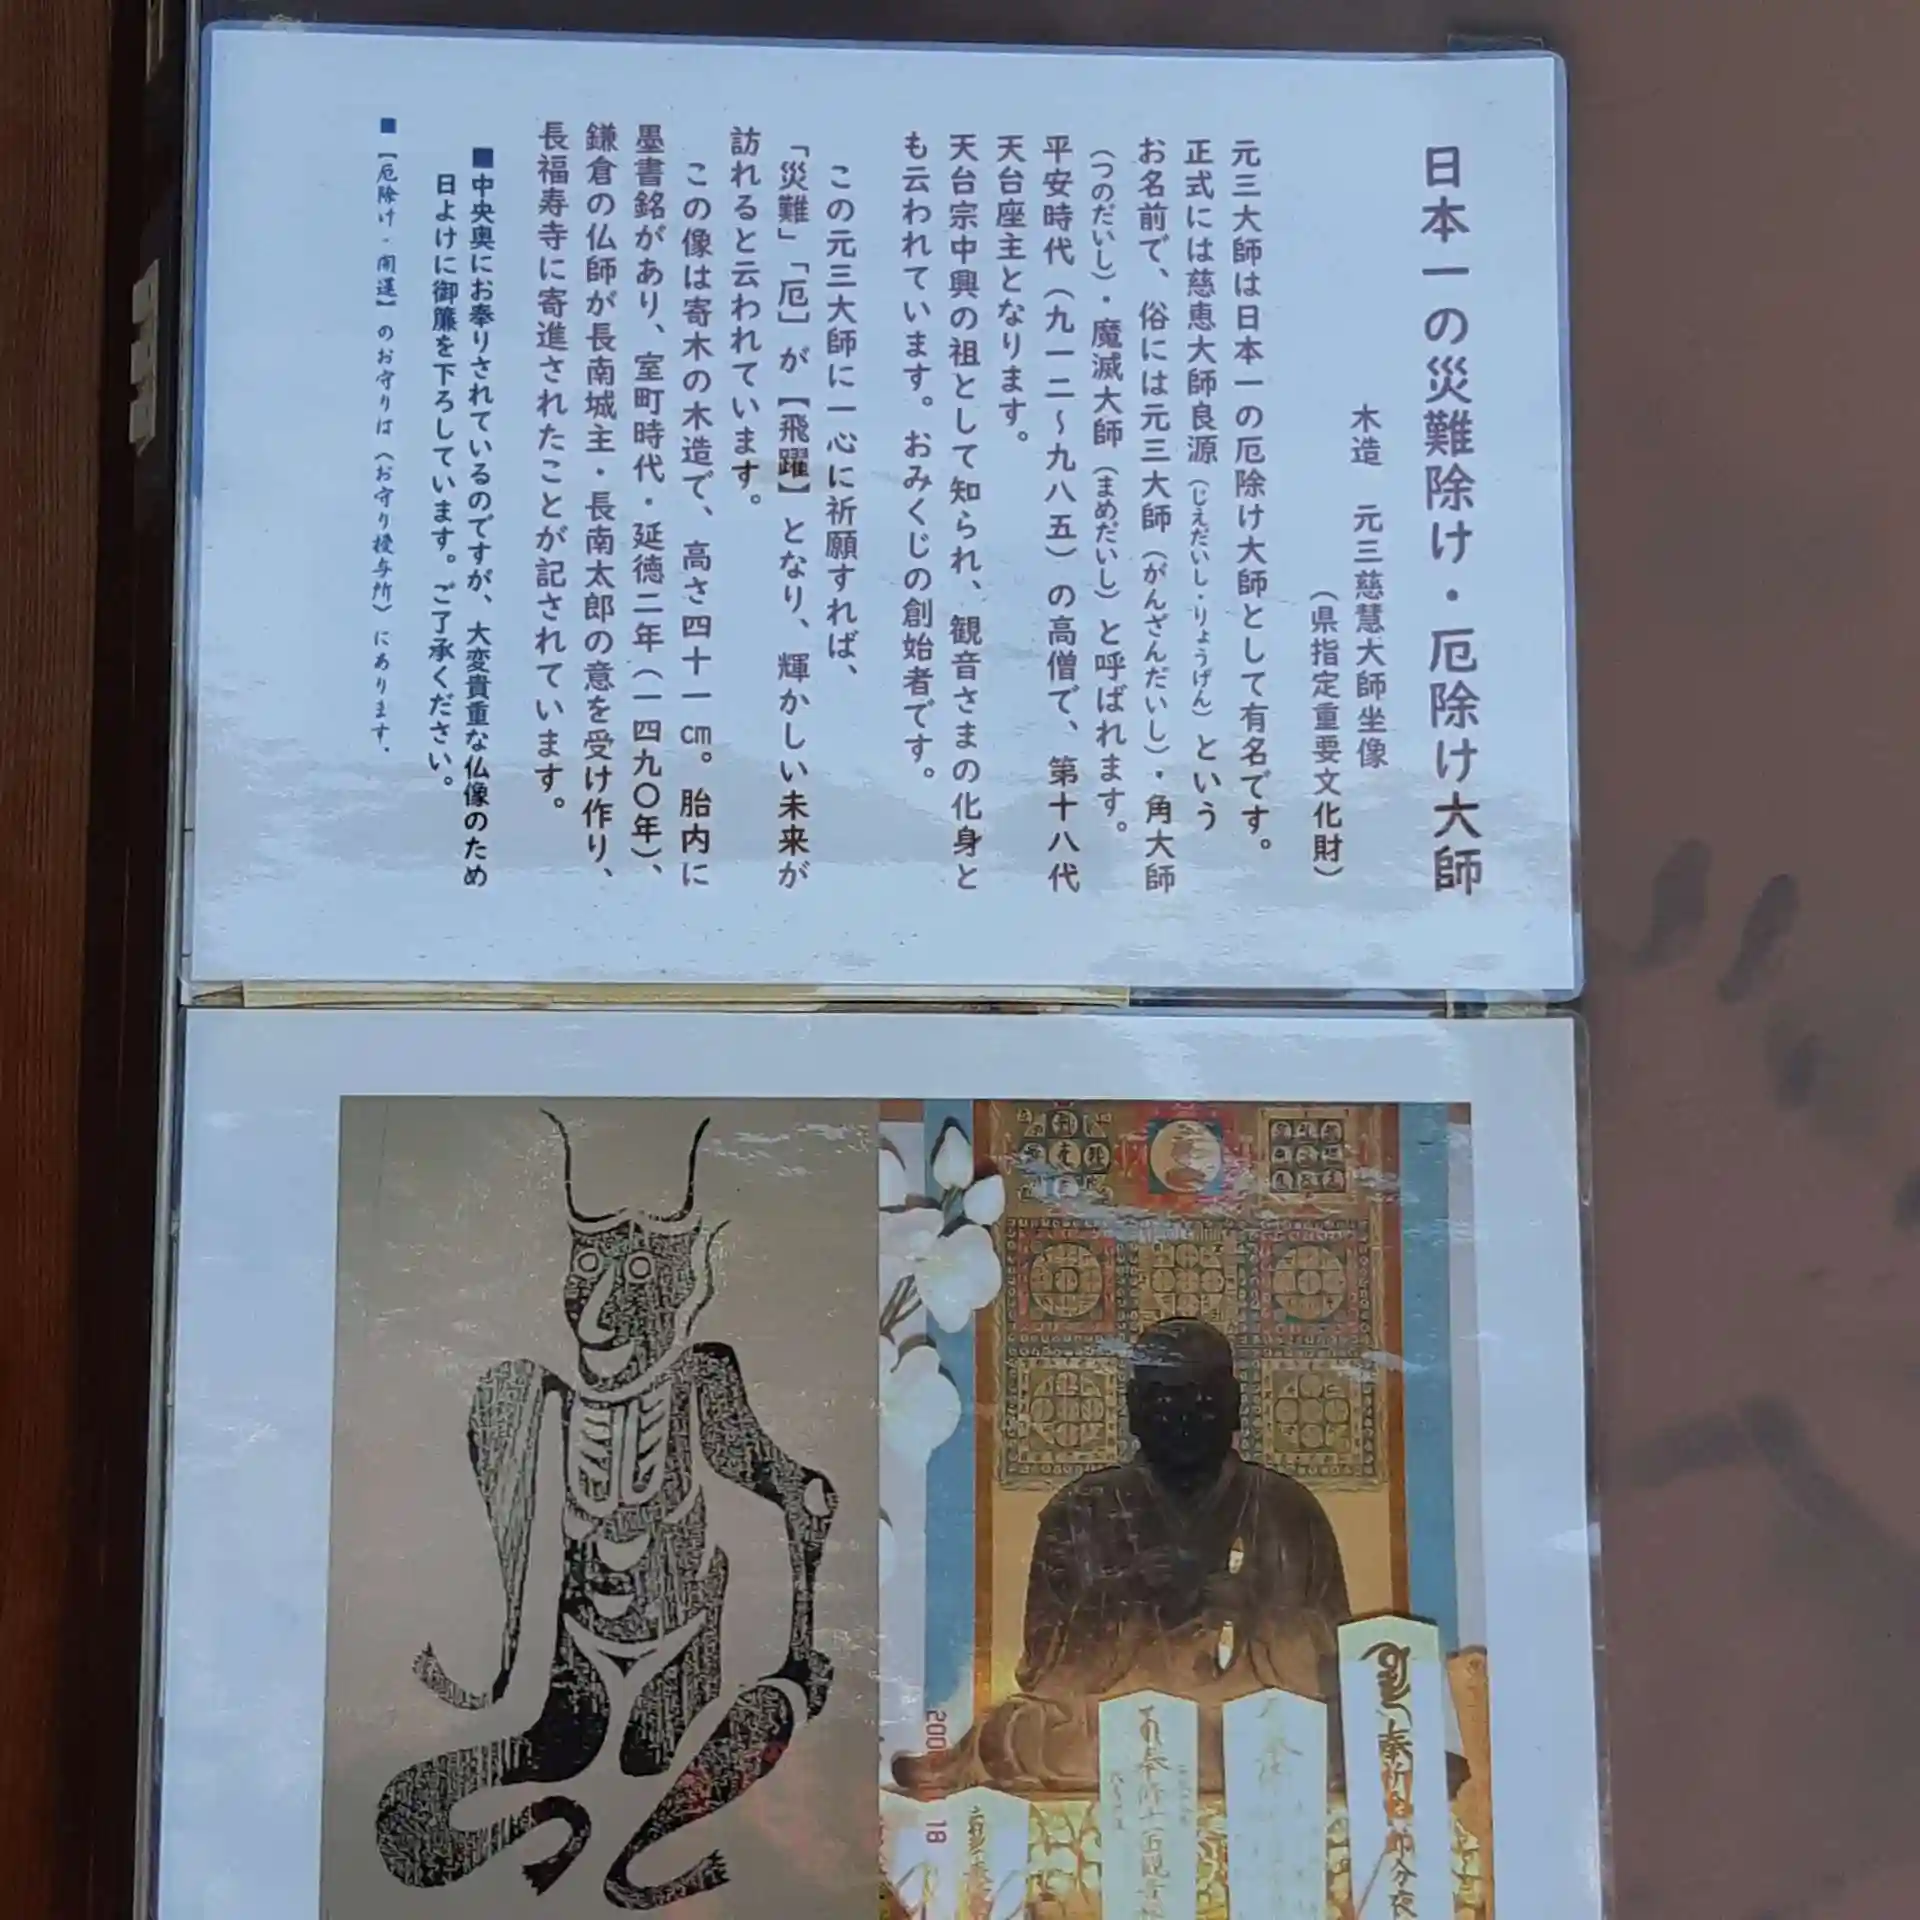 日本一の災難除け・厄除け大師
木造　元三慈慧大師坐像
（県指定重要文化財）
元三大師は日本一の厄除け大師として有名です。
正式には慈恵大師良源（じえだいし・りょうげん）という
お名前で、俗には元三大師（がんざんだいし）・角大師
（つのだいし）・魔滅大師（まめだいし）と呼ばれます。
平安時代（九一二～九八五）の高僧で、第十八代
天台座主となります。
天台宗中興の祖として知られ、観音さまの化身と
も云われています。おみくじの創始者です。
この元三大師に一心に祈願すれば、
「災難」「厄」が【飛躍】となり、輝かしい未来が
訪れると云われています。
この像は寄木の木造で、高さ四十一㎝。胎内に
墨書銘があり、室町時代・延徳二年（一四九〇年）、
鎌倉の仏師が長南城主・長南太郎の意を受け作り、
長福寿寺に寄進されたことが記されています。
■中央奥にお奉りされているのですが、大変貴重な仏像のため
日よけに御簾を下ろしています。ご了承ください。
■【厄除け・開運】のお守りは（お守り授与所）にあります。